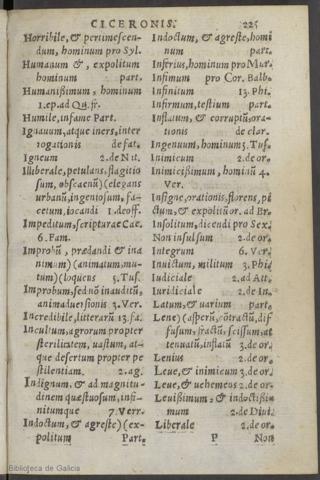 CICERONIS. 225
Horribile, & pertimescen-
dum, hominum pro Syl.
Humanum &, expolitum
hominum part.
Humanißimum, hominum
1.ep.ad Qu.fr.
Humile, infame Part.
Ignauum, atque iners, inter
rogationis de fat.
Igneum 2.de Nat.
Illiberale, petulans, flagitio
sum, obscaenū) (elegans
urbanū, ingeniosum, fa-
cetum, iocandi 1.deoff.
Impeditum, scripturae Cae.
6.Fam.
Improbū, praedandi & ina
nimum) (animatum, mu-
tum) (loquens 3.Tus.
Improbum, sed nō inauditū,
animaduersionis 3.Ver.
Incredibile, litterarū 13.fa.
Incultum, agrorum propter
sterilitatem, uastum, at-
que desertum propter pe
stilentiam. 2.ag.
Indignum, & ad magnitu-
dinem quaestuosum, infi-
nitumque 7.Verr.
Indoctum, & agreste) (ex-
politum Part.
Indoctum, & agreste, homi
num part.
Inferius, hominum pro Mur.
Infimum pro Cor. Balb.
Infinitum 13.Phi.
Infirmum, testium part.
Inflatum, & corruptū, ora-
tionis de clar.
Ingenuum, hominum 5.Tus.
Inimicum 2.de or.
Inimicißimum, hominū 4.
Ver.
Insigne, orationis, florens, pi
ctum, & expolitū or. ad Br.
Insolitum, dicendi pro Sex.
Non insulsum 2.de or.
Integrum 6.Ver.
Inuictum, militum 3.Phi.
Iudiciale 2.ad Att.
Iuridiciale 2.de In.
Latum, & uarium part.
Lene) (asperū, cōtractū, dif
fusum, fractū, scissum, at
tenuatū, inflatū 3.de or.
Lenius 2.de or.
Leue, & inimicum 3.de or.
Leue, & uehemens 2.de or.
Leuißimum, & indoctißi-
mum 2.de Diui.
Liberale 2.de or.
P Non
Biblioteca de Galicia